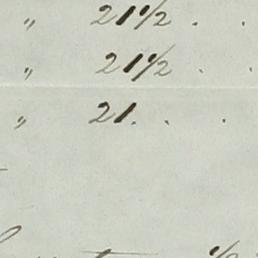 „ 21 1/2 . .
„ 21 1/2 . .
„ 21. . .